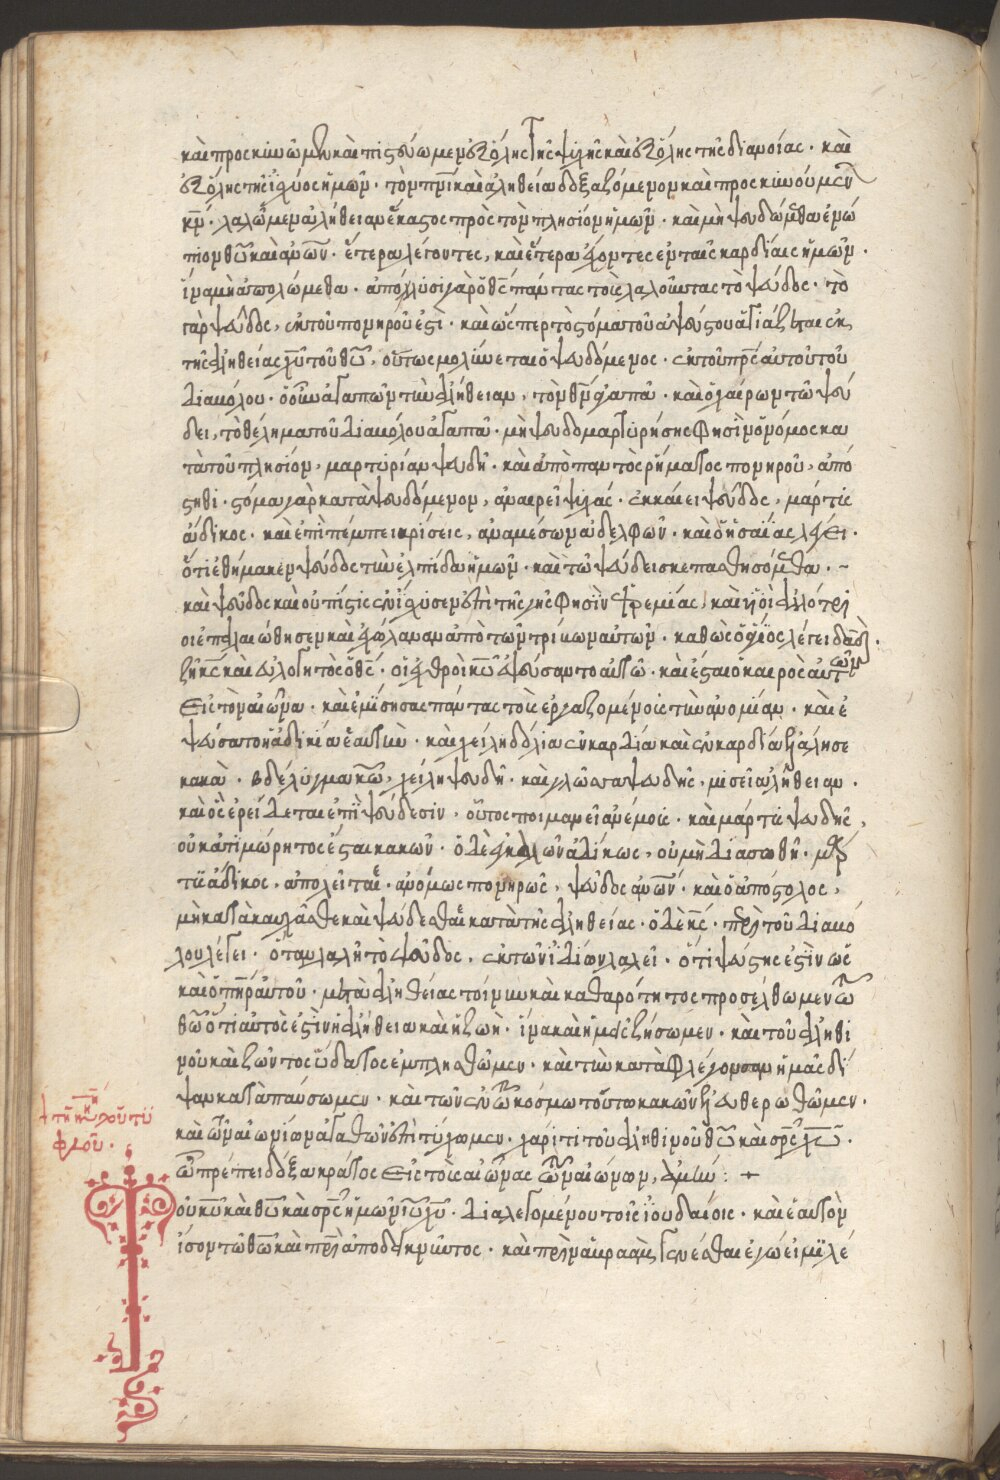 καὶ προσκυνῶμεν καὶ πιστεύωμεν ἐξ ὅλης τῆς ψυχῆς καὶ ἐξ ὅλης τῆς διανοίας · καὶ
ἐξ ὅλης τῆς ἰσχύος ἡμῶν · τὸν πρι καὶ ἀληθεία δοξαζόμενον καὶ προσκυνούμεν
κν · λαλῶμεν ἀλήθειαν ἕκαστος πρὸς τὸν πλησίον ἡμῶν · καὶ μὴ ψευδώμεθα ἐνώ
πιον θυ καὶ ἀνων · ἕτερα λέγοντες, καὶ ἕτερα ἔχοντες ἐν ταῖς καρδίαις ἡμῶν ·
ἵνα μὴ ἀπολώμεθα · ἀπολλύσι γὰρ ὁ θς πάντας τοὺς λαλοῦντας τὸ ψεῦδος · τὸ
γὰρ ψεῦδος, ἐκ τοῦ πονηροῦ ἐστὶ · καὶ ὥσπερ τὸ στόμα τοῦ ἀψεύστου ἁγιάζεται ἐκ
τῆς ἀληθείας χυ τοῦ θυ, οὕτως μολύνεται ὁ ψευδόμενος · ἐκ τοῦ πρς αὐτοῦ τοῦ
διαβόλου · ὁ οὖν ἀγαπῶν τὴν ἀλήθειαν, τὸν θν ἀγαπᾶ · καὶ ὁ χαίρων τῶ ψεύ
δει, τὸ θέλημα τοῦ διαβόλου ἀγαπᾶ · μὴ ψευδομαρτυρήσης φησὶν ὁ νόμος κα
τὰ τοῦ πλησίον, μαρτυρίαν ψευδῆ · καὶ ἀπὸ παντὸς ῥήματος πονηροῦ, ἀπό
στηθι · στόμα γὰρ καταψευδόμενον, ἀναιρεῖ ψυχάς · ἐκκαίει ψεῦδος, μάρτυς
ἄδικος · καὶ ἐπιπέμπει κρίσεις, ἀναμέσων ἀδελφῶν · καὶ ὁ ἡσαΐας λέγει ·
ὅτι ἐθήκαμεν ψεῦδος τὴν ἐλπίδα ἡμῶν · καὶ τῶ ψεύδει σκεπασθησόμεθα ·
καὶ ψεῦδος καὶ οὐ πίστις ἐνίσχυσεν ἐπὶ τῆς γῆς φησὶν ἱερεμίας, καὶ υἱοὶ ἀλλότρι
οι ἐπαλαιώθησεν καὶ ἐχώλαναν ἀπὸ τῶν τρίβων αὐτῶν · καθὼς ὁ θεῖος λέγει δαδ ·
ζῆ κς καὶ εὐλογητὸς ὁ θς · οἱ ἐχθροὶ κυ ἐψεύσαντο αὐτῶ · καὶ ἔσται ὁ καιρὸς αὐτῶν
εἰς τὸν αἰῶνα · καὶ ἐμίσησας πάντας τοὺς ἐργαζομένους τὴν ἀνομίαν · καὶ ἐ
ψεύσατο ἡ ἀδικία ἑαυτὴν · καὶ χείλη δόλια ἐν καρδία καὶ ἐν καρδία ἐλάλησε
κακὰ · βδέλυγμα κω, χείλη ψευδῆ · καὶ γλῶσσα ψευδὴς, μισεῖ ἀλήθειαν ·
καὶ ὃς ἐρείδεται ἐπὶ ψεύδεσιν, οὗτος ποιμανεῖ ἀνέμους · καὶ μάρτυς ψευδὴς,
οὐκ ἀτιμώρητος ἔσται κακῶν · ὁ δὲ ἐγκαλῶν ἀδίκως, οὐ μὴ διασωθῆ · μάρ
τυς ἄδικος, ἀπολεῖται · ἀνόμως πονηρῶς, ψεῦδος ἀνων · καὶ ὁ ἀπόστολος,
μὴ κατακαυχᾶσθε καὶ ψεύδεσθαι κατὰ τῆς ἀληθείας · ὁ δὲ κς · περὶ τοῦ διαβό
λου λέγει · ὅταν λαλῆ τὸ ψεῦδος, ἐκ τῶν ἰδίων λαλεῖ · ὅτι ψεύστης ἐστὶν ὡς
καὶ ὁ πηρ αὐτοῦ · μετὰ ἀληθείας τοίνυν καὶ καθαρότητος προσέλθωμεν τῶ
θω ὅτι αὐτὸς ἐστὶν ἡ ἀλήθεια καὶ ἡ ζωὴ · ἵνα καὶ ἡμεῖς ζήσωμεν · καὶ τοῦ ἀληθι
νοῦ καὶ ζῶντος ὕδατος ἐμπλησθῶμεν · καὶ τὴν καταφλέγουσαν ἡμᾶς δί
ψαν καταπαύσωμεν · καὶ τῶν ἐν τῶ κόσμω τούτω κακῶν ἐλευθερωθῶμεν ·
καὶ τῶν αἰωνίων ἀγαθῶν ἐπιτύχωμεν · χάριτι τοῦ ἀληθινοῦ θυ καὶ σρς χυ ·
ὧ πρέπει δόξα κράτος εἰς τοὺς αἰῶνας τῶν αἰώνων, ἀμήν : +
οὐ κυ καὶ θυ καὶ σρς ἡμῶν ιυ χυ · διαλεγομένου τοῖς ἰουδαίοις · καὶ ἑαυτὸν
ἴσον τῶ θω καὶ πρι ἀποδεικνῦντος · καὶ πρὶν ἀβραὰμ γενέσθαι ἐγώ εἰμι λέ
τυ
φλοῦ ·
Τ